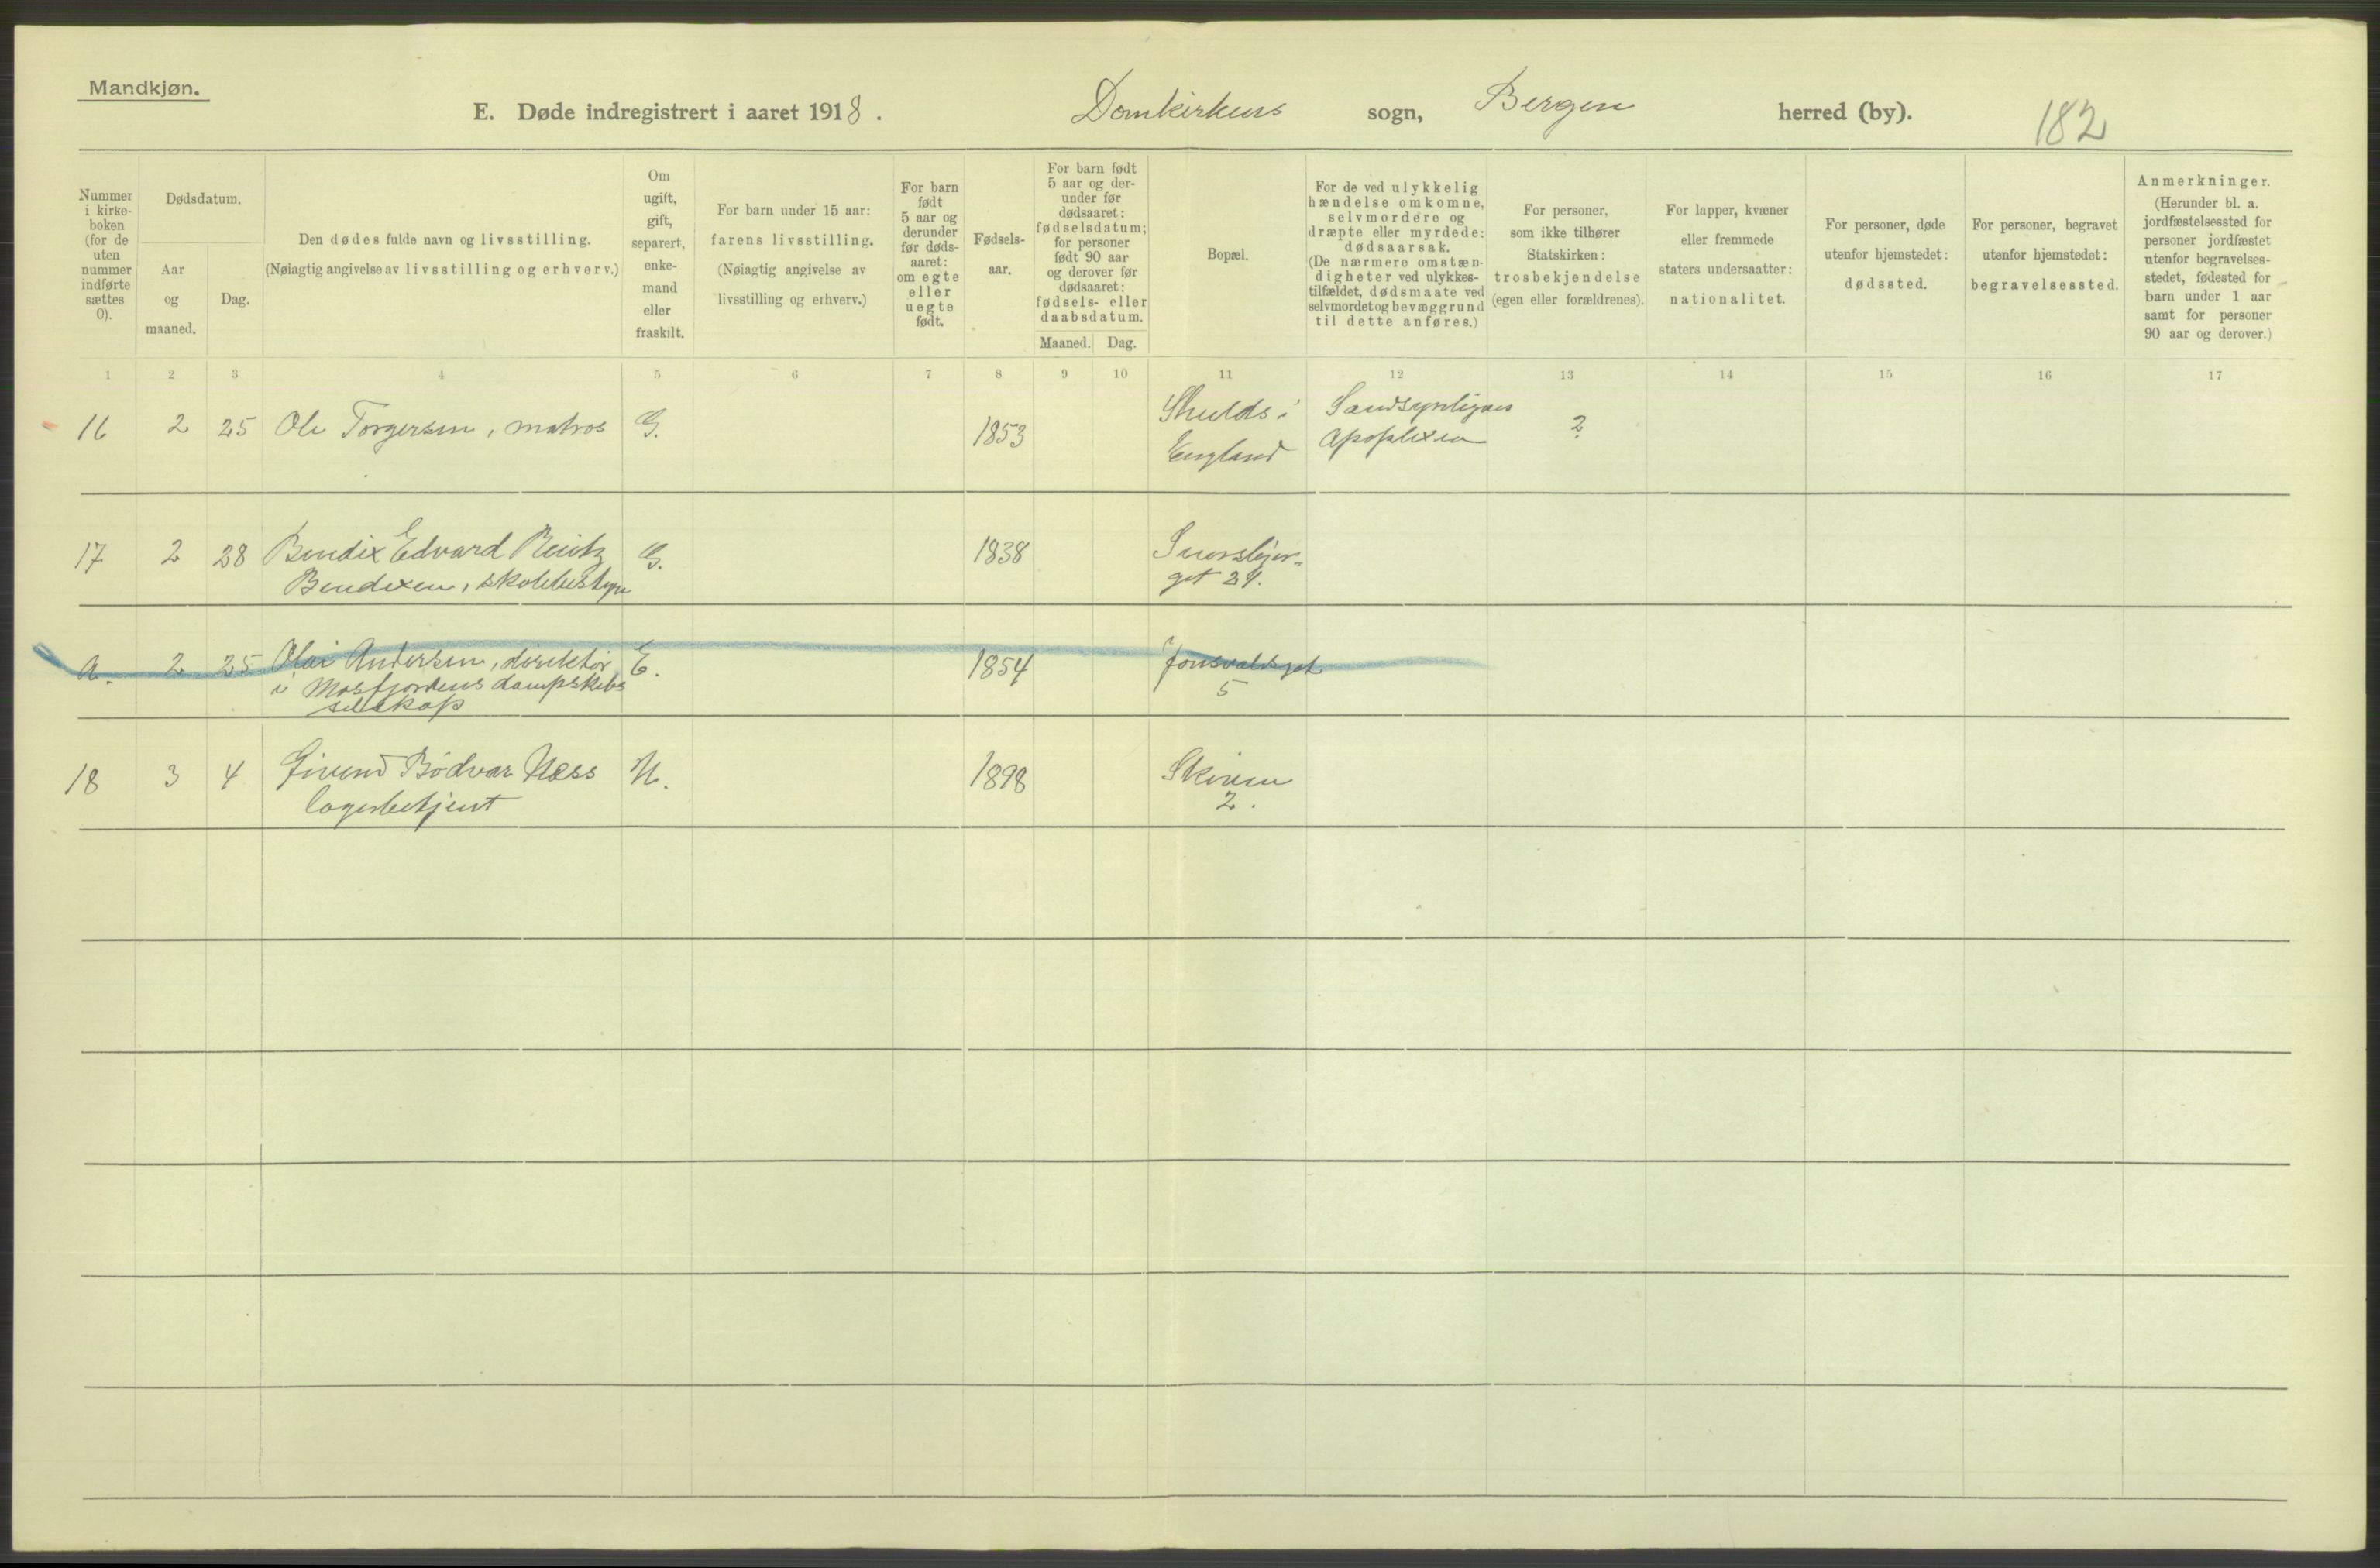 Mandkjøn.
E. Døde indregistrert i aaret 1918. Domkirkens sogn, Bergen herred (by). 182
Nummer i kirke- boken (for de uten nummer indførte sættes 0).
Dødsdatum.
Aar og maaned.
Dag.
Den dødes fulde navn og livsstilling.
(Nøiagtig angivelse av livsstilling og erhverv.)
Om ugift, gift, separert, enke- mand eller fraskilt.
For barn under 15 aar:
farens livsstilling.
(Nøiagtig angivelse av
livsstilling og erhverv.)
For barn født 5 aar og derunder før døds- aaret: om egte eller uegte født.
Fødsels- aar.
For barn født 5 aar og der- under før dødsaaret: fødselsdatum; for personer født 90 aar og derover før dødsaaret: fødsels- eller daabsdatum.
Maaned. Dag.
Bopæl.
For de ved ulykkelig hændelse omkomne, selvmordere og dræpte eller myrdede: dødsaarsak. (De nærmere omstæn- digheter ved ulykkes- tilfældet, dødsmaate ved selvmordet og bevæggrund til dette anføres.)
For personer, som ikke tilhører Statskirken: trosbekjendelse (egen eller forældrenes).
For lapper, kvæner eller fremmede staters undersaatter: nationalitet.
For personer, døde utenfor hjemstedet: dødssted.
For personer, begravet utenfor hjemstedet: begravelsessted.
Anmerkninger. (Herunder bl. a. jordfæstelsessted for personer jordfæstet utenfor begravelses- stedet, fødested for barn under 1 aar samt for personer 90 aar og derover.)
1 2 3 4 5 6 7 8 9 10 11 12 13 14 15 16 17
16 2 25 Ole Torgersen, matros G. 1853 Shields i Sandsynligvis ?
England Apoplexia
17 2 28 Bendix Edvard G. 1838
Bendixen, skolebestyrer get 24.
a. 2 25 Olai Andersen, direktør E. 1854
i Mosfjordens dampskibs 5
selskap
18 3 4 Eivind Bødvar Næss U. 1898 Skiven
lagerbetjent 2.